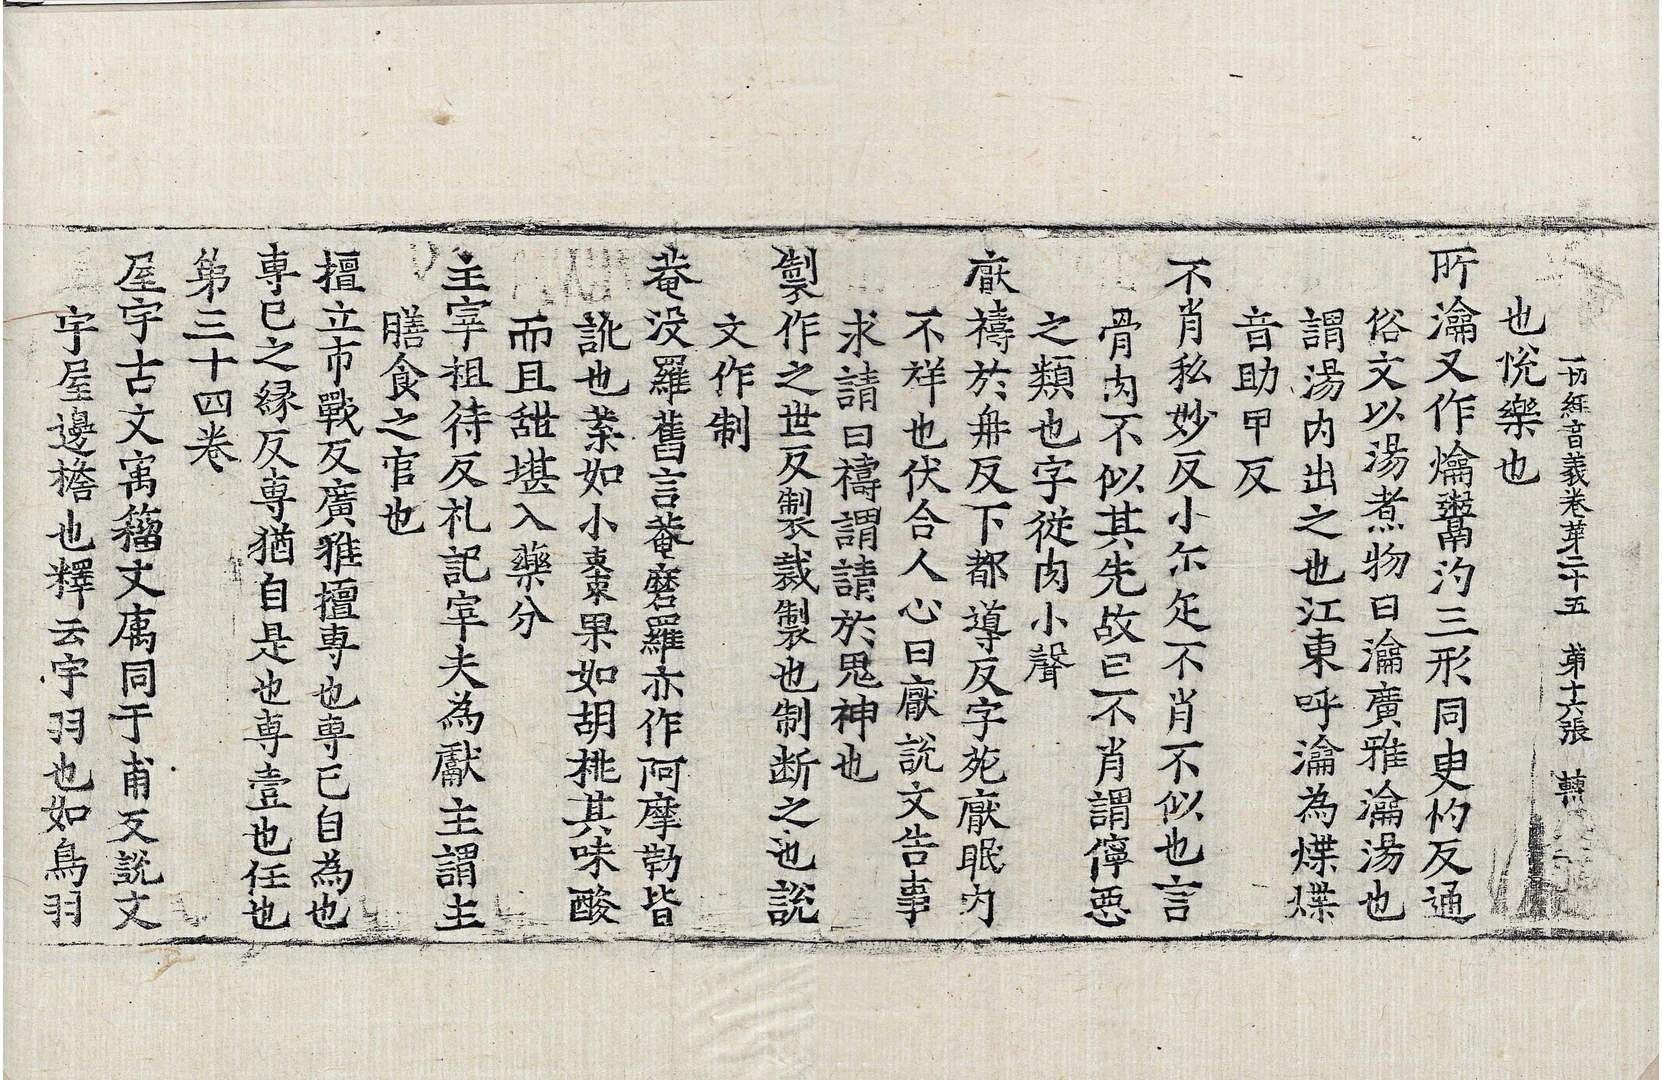 一切經音義卷第二十五　第十六張　𨍏
也悅樂也
所瀹又作爚鬻汋三形同臾灼反通
俗文以湯煮物曰瀹廣雅瀹湯也
謂湯内出之也江東呼瀹為煠煠
音助甲反
不肖私妙反小尓疋不肖不似也言
骨肉不似其先故曰不肖謂儜惡
之類也字從肉小聲
厭禱於冉反下都導反字苑厭眠内
不祥也伏合人心曰厭說文告事
求請曰禱謂請於鬼神也
製作之世反製裁製也制断之也說
文作制
菴没羅舊言菴磨羅亦作阿摩勒皆
訛也葉如小棗果如胡桃其味酸
而且甜堪入藥分
主宰祖待反礼記宰夫為獻主謂主
膳食之官也
擅立市戰反廣雅擅專也專己自為也
專已之縁反專猶自是也專壹也任也
第三十四卷
屋宇古文㝢籀文庽同于甫反說文
宇屋邊檐也釋云宇羽也如鳥羽